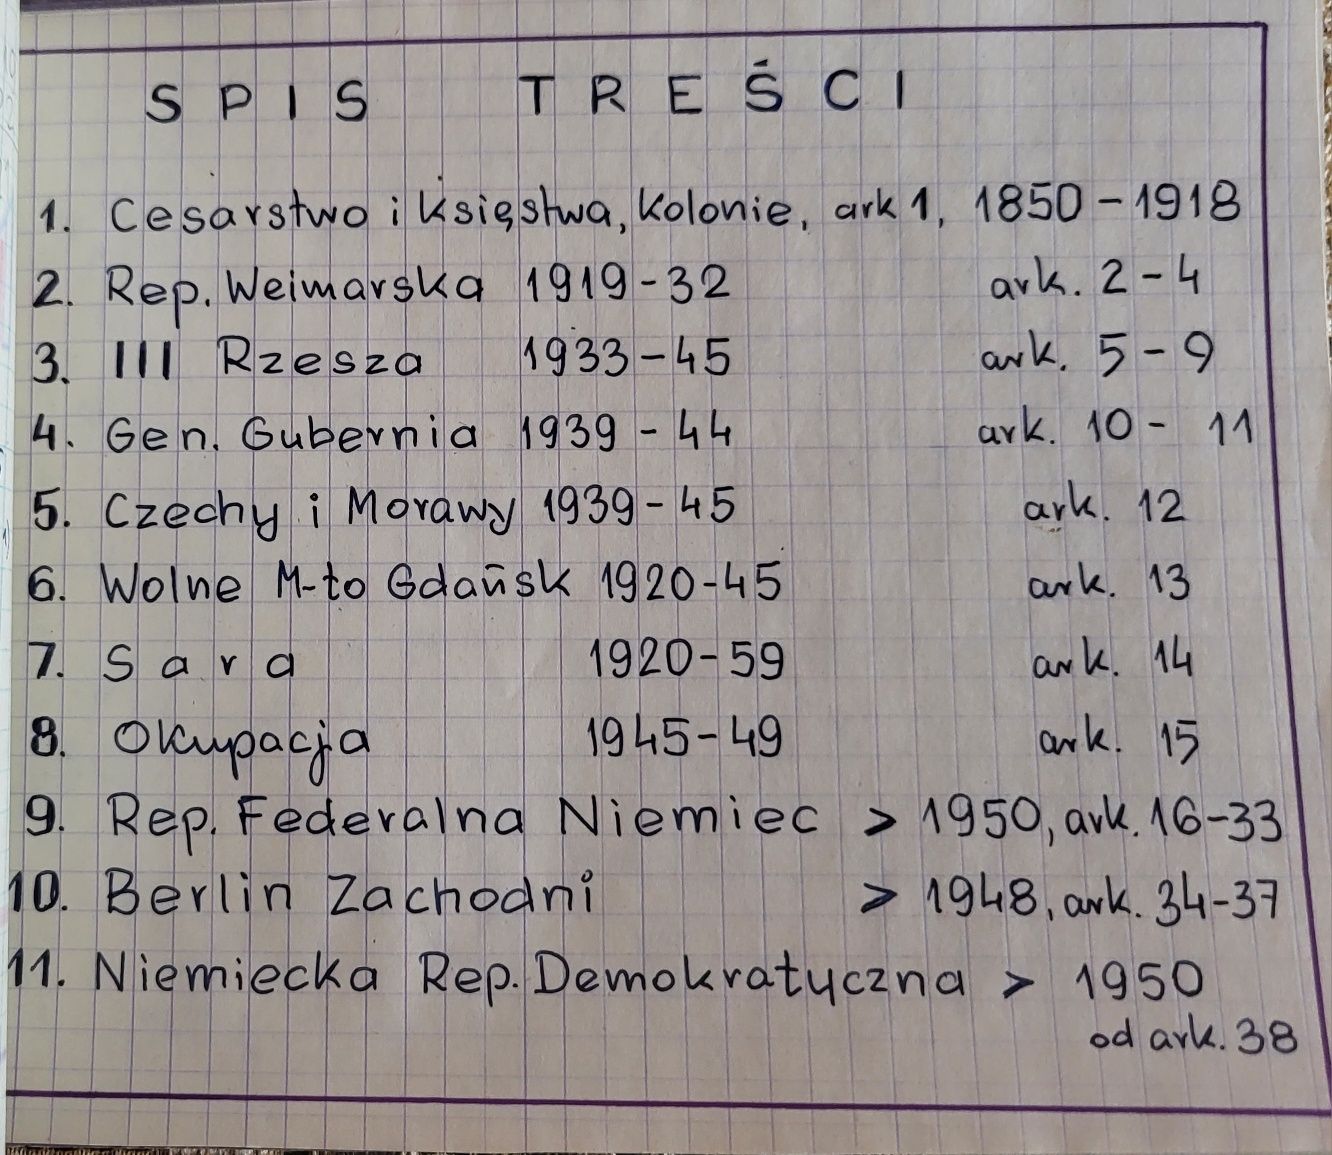 SPIS TREŚCI
1. Cesarstwo i Księstwa, Kolonie, ark 1, 1850-1918
2. Rep. Weimarska 1919-32 ark. 2-4
3. III Rzesza 1933-45 ark. 5-9
4. Gen. Gubernia 1939-44 ark. 10-11
5. Czechy i Morawy 1939-45 ark. 12
6. Wolne M-to Gdańsk 1920-45 ark. 13
7. Sara 1920-59 ark. 14
8. Okupacja 1945-49 ark. 15
9. Rep. Federalna Niemiec > 1950, ark. 16-33
10. Berlin Zachodni > 1948, ark. 34-37
11. Niemiecka Rep. Demokratyczna > 1950
od ark. 38